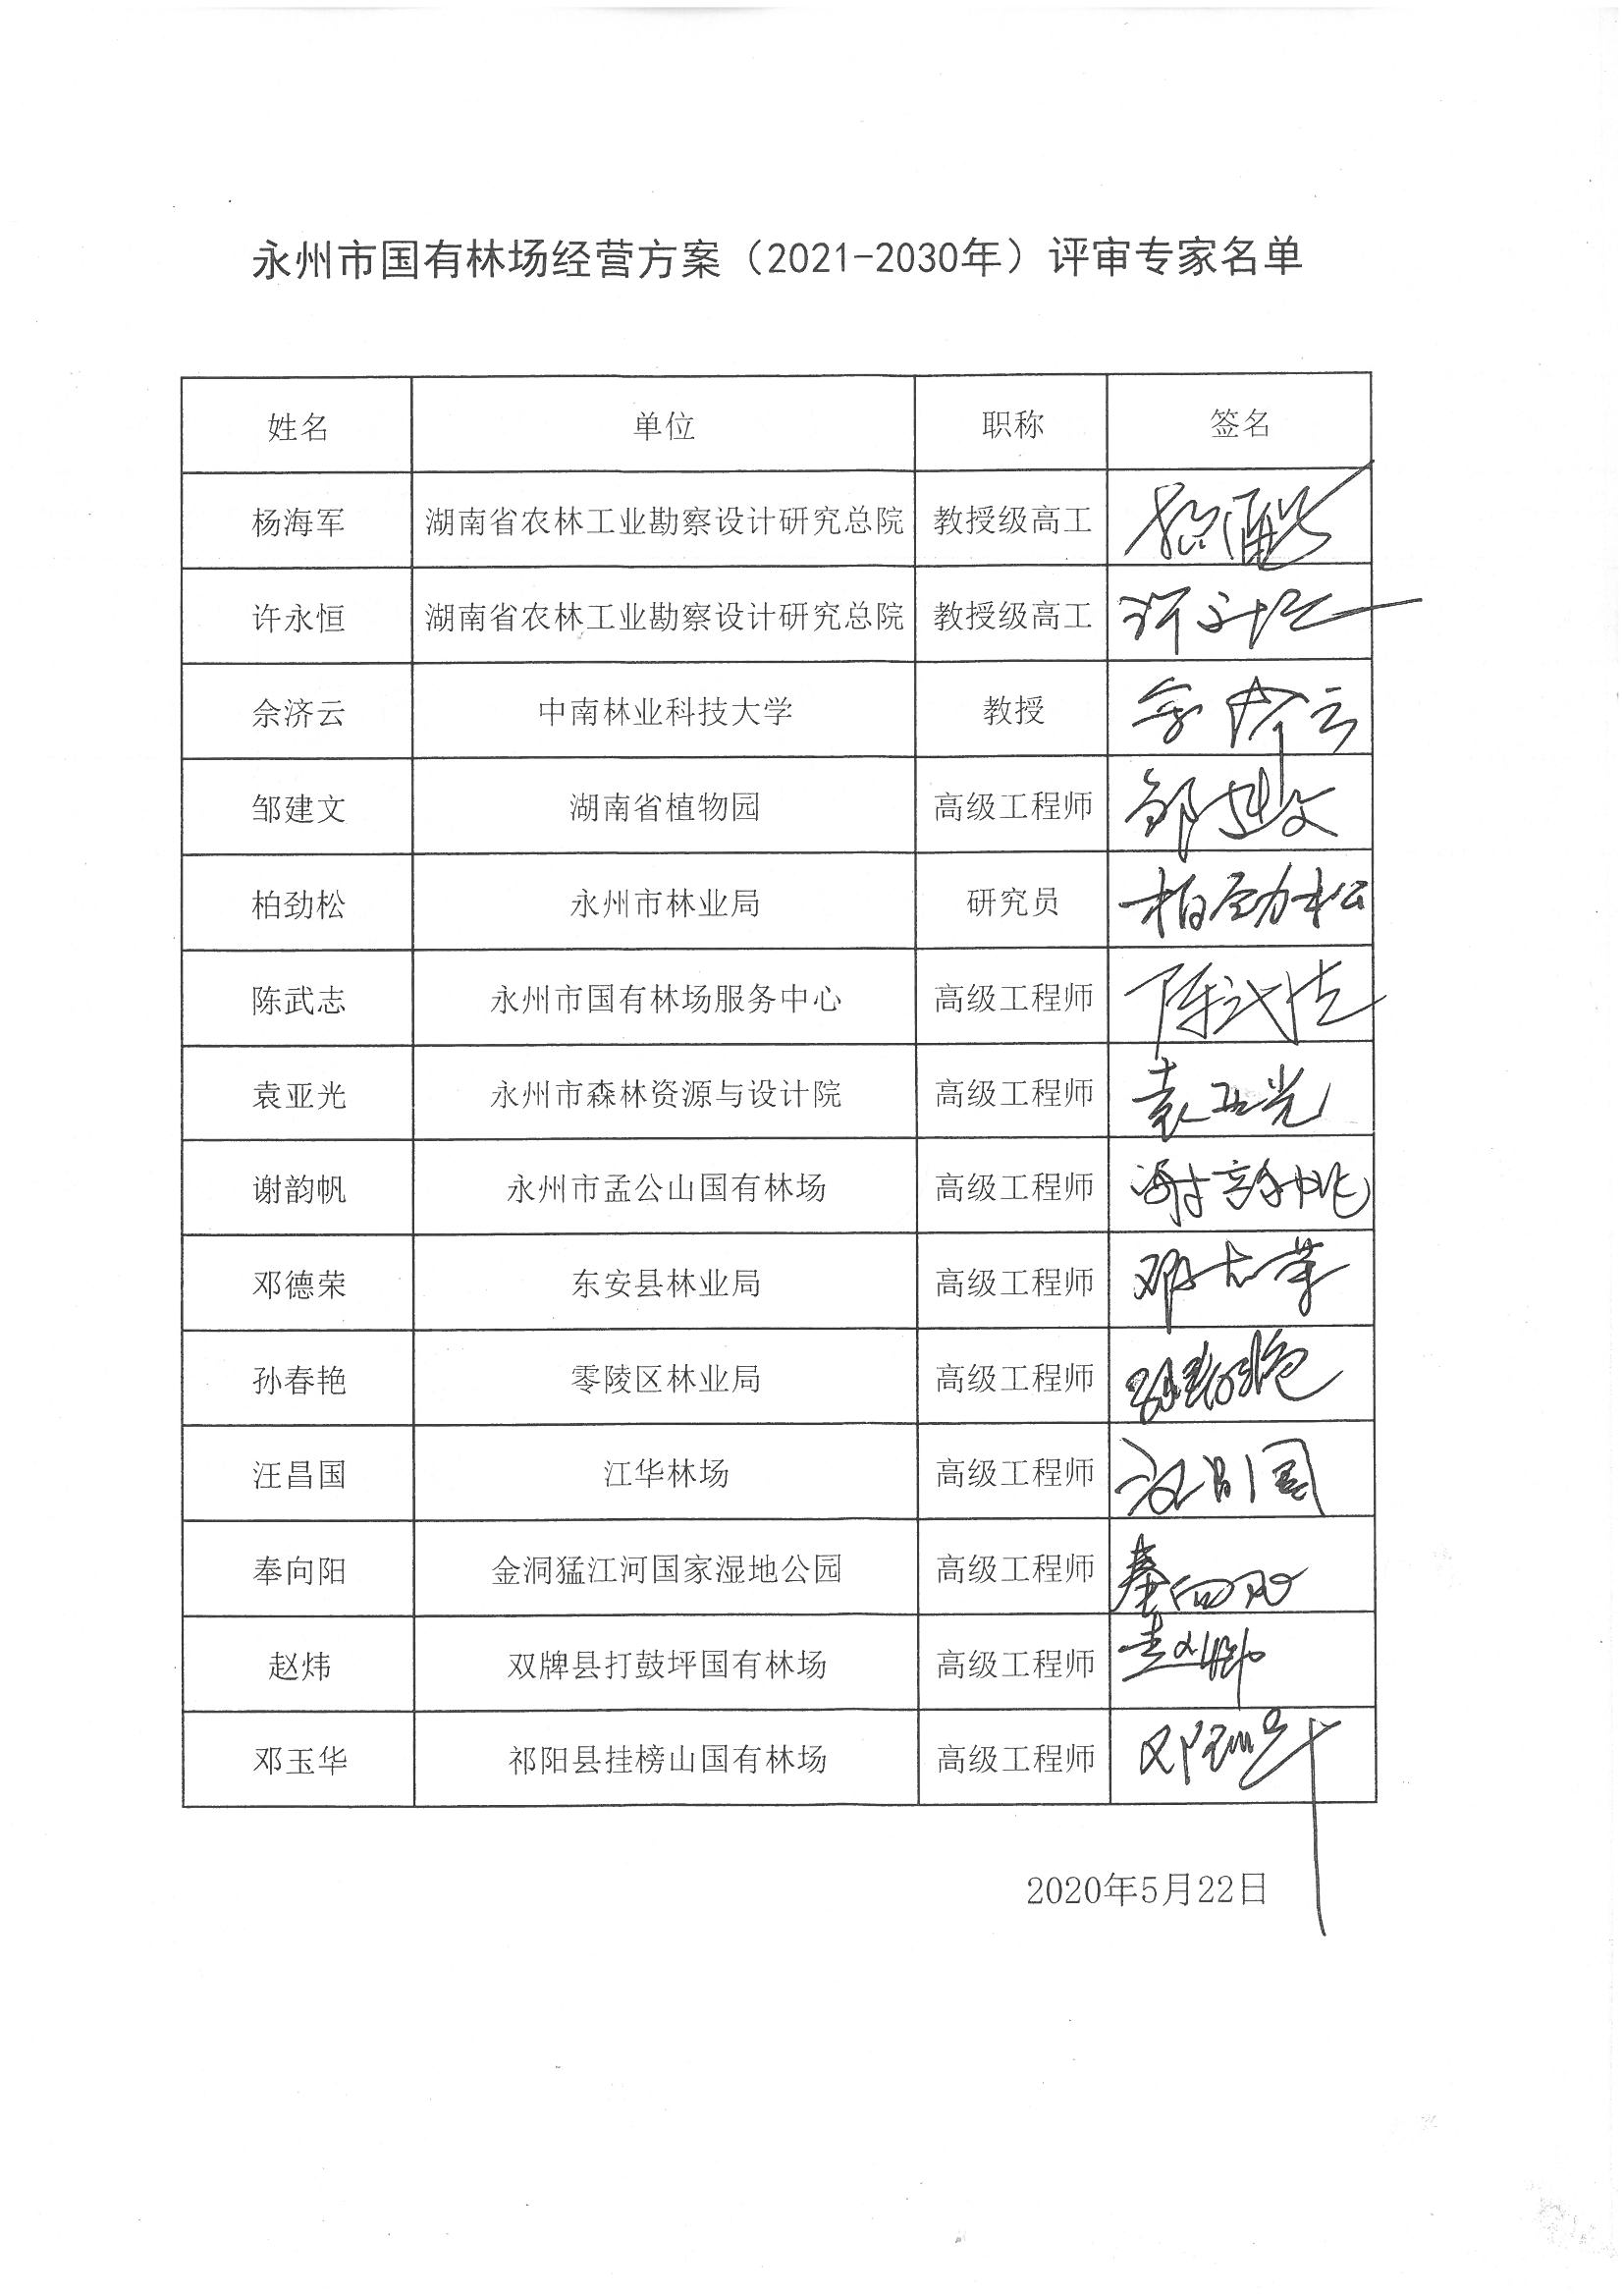 永州市国有林场经营方案（2021-2030年）评审专家名单
姓名 单位 职称 签名
杨海军 湖南省农林工业勘察设计研究总院 教授级高工
许永恒 湖南省农林工业勘察设计研究总院 教授级高工 许永恒
佘济云 中南林业科技大学 教授 佘济云
邹建文 湖南省植物园 高级工程师 邹建文
柏劲松 永州市林业局 研究员 柏劲松
陈武志 永州市国有林场服务中心 高级工程师 陈武志
袁亚光 永州市森林资源与设计院 高级工程师 袁亚光
谢韵帆 永州市孟公山国有林场 高级工程师 谢韵帆
邓德荣 东安县林业局 高级工程师 邓德荣
孙春艳 零陵区林业局 高级工程师 孙春艳
汪昌国 江华林场 高级工程师 汪昌国
奉向阳 金洞猛江河国家湿地公园 高级工程师 奉向阳
赵炜 双牌县打鼓坪国有林场 高级工程师
邓玉华 祁阳县挂榜山国有林场 高级工程师 邓玉华
2020年5月22日